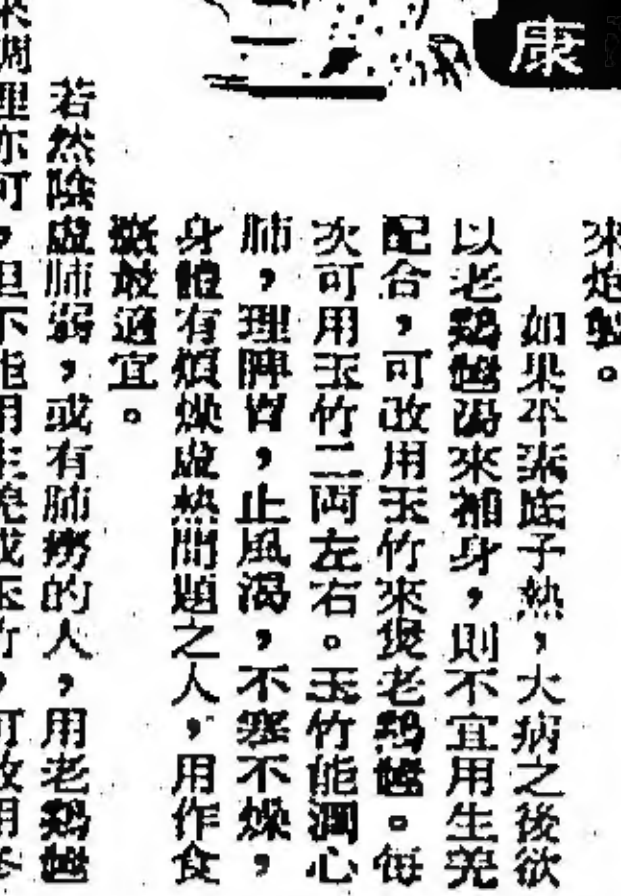 康
來炮製。
如果平素底子熱，大病之後欲
以老鷄乸湯來補身，則不宜用生羌
配合，可改用玉竹來煲老鷄乸。每
次可用玉竹二両左右。玉竹能潤心
肺，理脾胃，止風濕，不寒不燥，
身體有煩燥虛熱問題之人，用作食
療最適宜。
若然陰虛肺弱，或有肺癆的人，用老鷄乸
來調理亦可，但不能用生羌或玉竹，可改用參